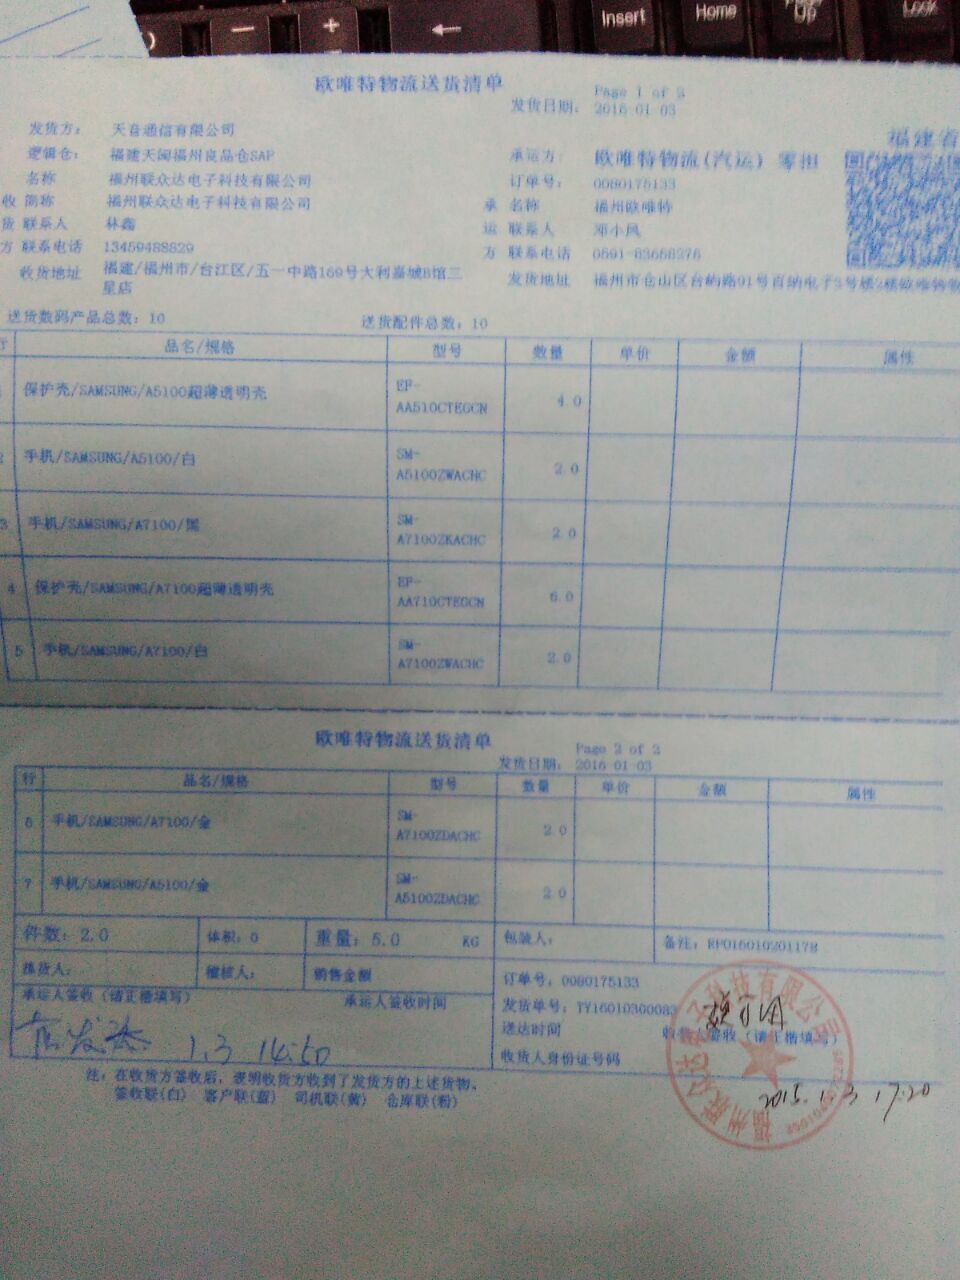 Insert
Home
Page Up
欧唯特物流送货清单
Page 1 of 2
发货日期: 2016-01-03
福建省
发货方: 天音通信有限公司
逻辑仓: 福建天闽福州良品仓SAP
承运方: 欧唯特物流(汽运) 零担
名称 福州联众达电子科技有限公司
订单号: 0080175133
收 简称 福州联众达电子科技有限公司
承 名称 福州欧唯特
货 联系人 林鑫
运 联系人 邓小凤
方 联系电话 13459488829
方 联系电话 0591-83668276
收货地址 福建/福州市/台江区/五一中路169号大利嘉城B馆三星店
发货地址 福州市仓山区台屿路91号百纳电子3号楼2楼欧唯特物
送货数码产品总数: 10
送货配件总数: 10
行 品名/规格 型号 数量 单价 金额 属性
保护壳/SAMSUNG/A5100超薄透明壳 EF-AA510CTEGCN 4.0
2 手机/SAMSUNG/A5100/白 SM-A5100ZWACHC 2.0
3 手机/SAMSUNG/A7100/黑 SM-A7100ZKACHC 2.0
4 保护壳/SAMSUNG/A7100超薄透明壳 EF-AA710CTEGCN 6.0
5 手机/SAMSUNG/A7100/白 SM-A7100ZWACHC 2.0
欧唯特物流送货清单
Page 2 of 2
发货日期: 2016-01-03
行 品名/规格 型号 数量 单价 金额 属性
6 手机/SAMSUNG/A7100/金 SM-A7100ZDACHC 2.0
7 手机/SAMSUNG/A5100/金 SM-A5100ZDACHC 2.0
件数: 2.0 体积: 0 重量: 5.0 KG 包装人: 备注: RF01601020117B
拣货人: 稽核人: 销售金额 订单号: 0080175133
承运人签收 (请正楷填写) 承运人签收时间 发货单号: TY16010300083
1.3 14:50
送达时间 收货人签收 (请正楷填写)
收货人身份证号码
2015.1.3 17:20
注: 在收货方签收后, 表明收货方收到了发货方的上述货物。
签收联(白) 客户联(蓝) 司机联(黄) 仓库联(粉)
福州联众达电子科技有限公司